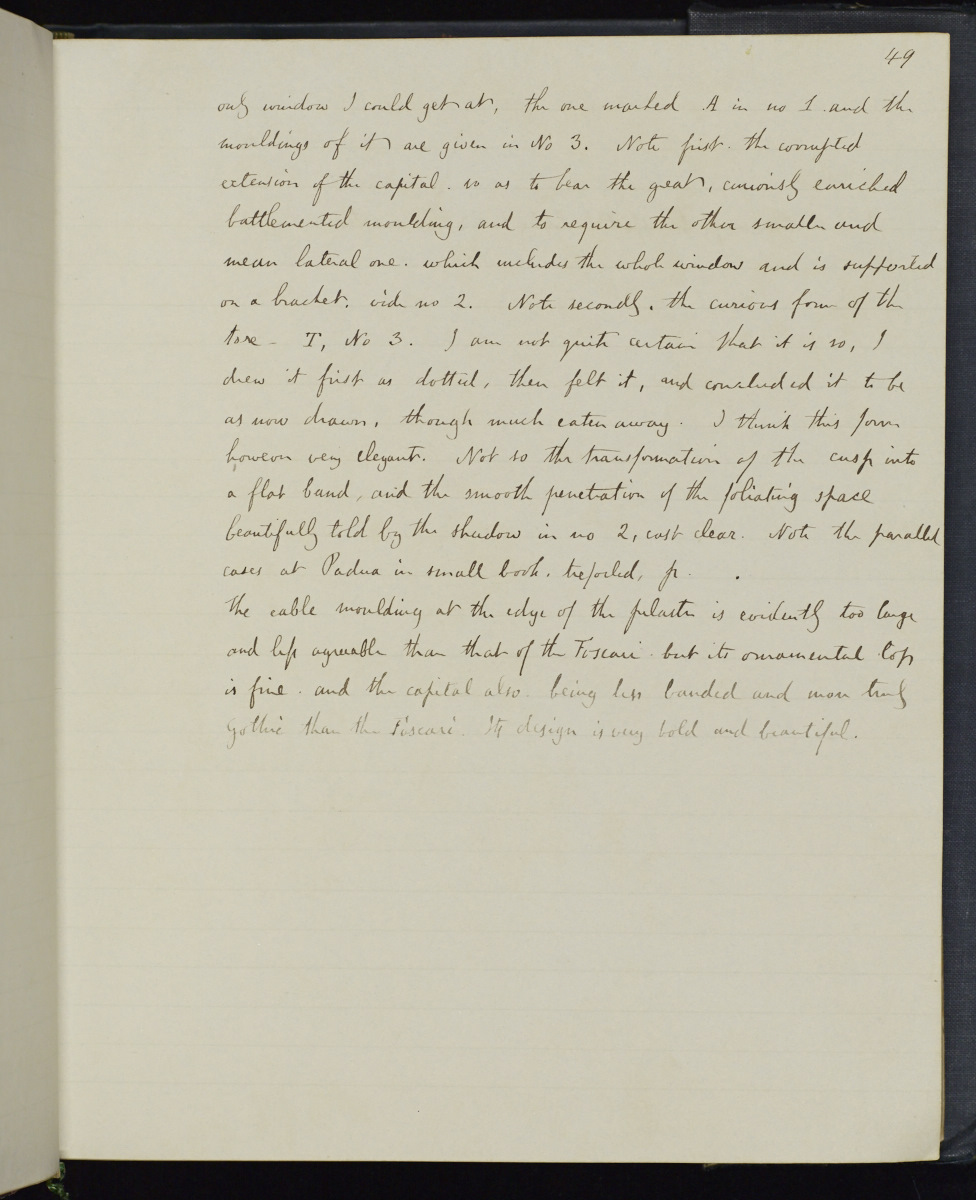 49
only window I could get at, the one marked A in no 1 and the
mouldings of it are given in No 3. Note first. the corrupted
extension of the capital. so as to bear the great, curiously enriched
battlemented moulding, and to require the other smaller and
mean lateral one. which includes the whole window and is supported
on a bracket. vide no 2. Note secondly. the curious form of the
tore - T, No 3. I am not quite certain that it is so, I
drew it first as dotted, then felt it, and concluded it to be
as now drawn, though much eaten away. I think this form
however very elegant. Not so the transformation of the cusp into
a flat band, and the smooth penetration of the foliating space
beautifully told by the shadow in no 2, cast clear. Note the parallel
cases at Padua in small book. trefoiled, p.
the cable moulding at the edge of the pilaster is evidently too large
and less agreeable than that of the Foscari. but its ornamental top
is fine. and the capital also. being less banded and more truly
Gothic than the Foscari. Its design is very bold and beautiful.